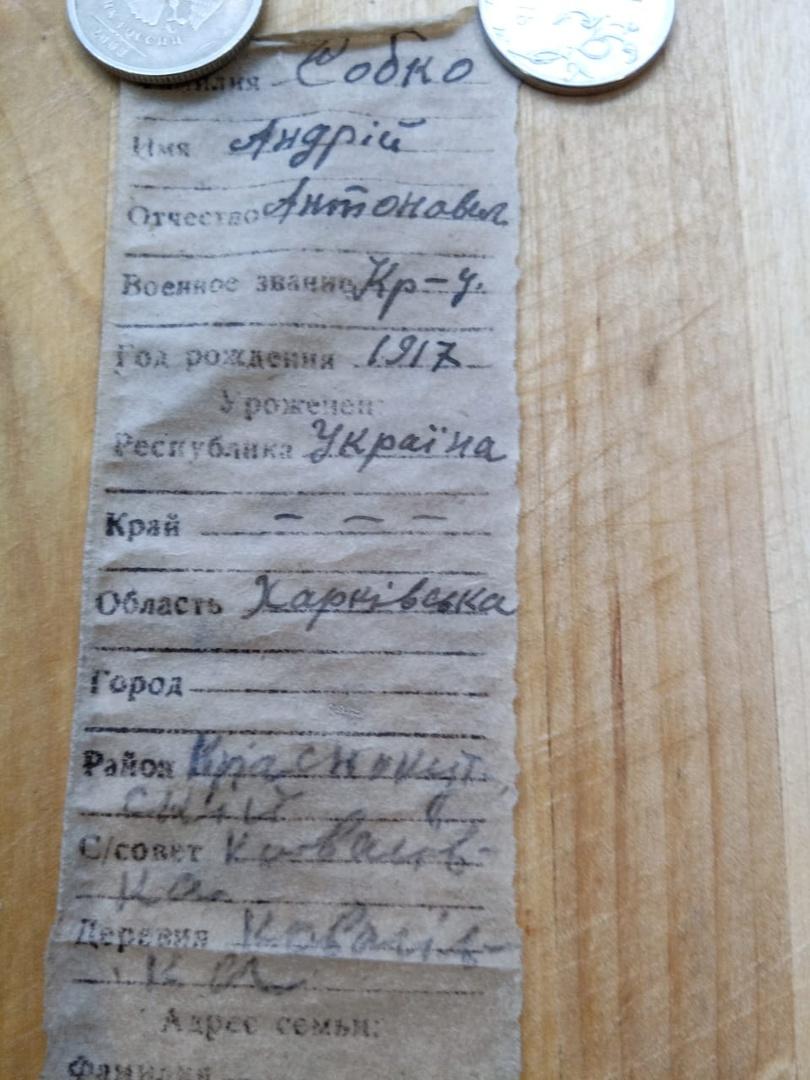 Фамилия Собко
Имя Андрій
Отчество Антонович
Военное звание Кр-ц.
Год рождения 1917
Уроженец:
Республика Україна
Край – – –
Область Харківська
Город
Район Краснокут-
ський
С/совет Ковалів-
ка
Деревня Ковалів-
ка
Адрес семьи:
Фамилия